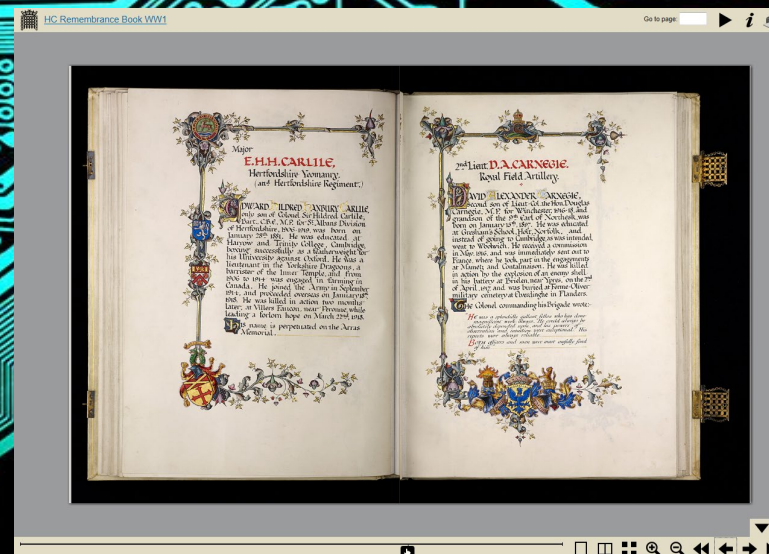 HC Remembrance Book WW1
Go to page:
Major
E.H.H. CARLILE,
Hertfordshire Yeomanry,
(and Hertfordshire Regiment.)
EDWARD HILDRED HANBURY CARLILE,
only son of Colonel Sir Hildred Carlile,
Bart., C.B.E., M.P. for St. Albans Division
of Hertfordshire, 1906-1919, was born on
January 28th 1881. He was educated at
Harrow and Trinity College, Cambridge,
boxing successfully as a featherweight for
his University against Oxford. He was a
lieutenant in the Yorkshire Dragoons, a
barrister of the Inner Temple, and from
1906 to 1914 was engaged in farming in
Canada. He joined the Army in September
1914, and proceeded overseas on January
1918. He was killed in action two months
later, at Villers Faucon, near Peronne while
leading a forlorn hope on March 22nd, 1918.
His name is perpetuated on the Arras
Memorial.
2nd Lieut. D.A. CARNEGIE.
Royal Field Artillery.
DAVID ALEXANDER CARNEGIE,
second son of Lieut-Col. the Hon. Douglas
Carnegie, M.P. for Winchester, 1916-18, and
grandson of the 9th Earl of Northesk, was
born on January 13th, 1897. He was educated
at Gresham's School, Holt, Norfolk, and
instead of going to Cambridge, as was intended,
went to Woolwich. He received a commission
in May, 1916, and was immediately sent out to
France, where he took part in the engagements
at Mametz and Contalmaison. He was killed
in action by the explosion of an enemy shell
in his battery at Brielen, near Ypres, on the 2nd
of April, 1917, and was buried at Ferme-Olivier
military cemetery at Elverdinghe in Flanders.
The Colonel commanding his Brigade wrote:-
He was a splendidly gallant fellow who has done
magnificent work always. He could always be
absolutely depended upon, and his powers of
observation and intuition were exceptional. His
reports were always reliable.
Both officers and men were most awfully fond
of him.